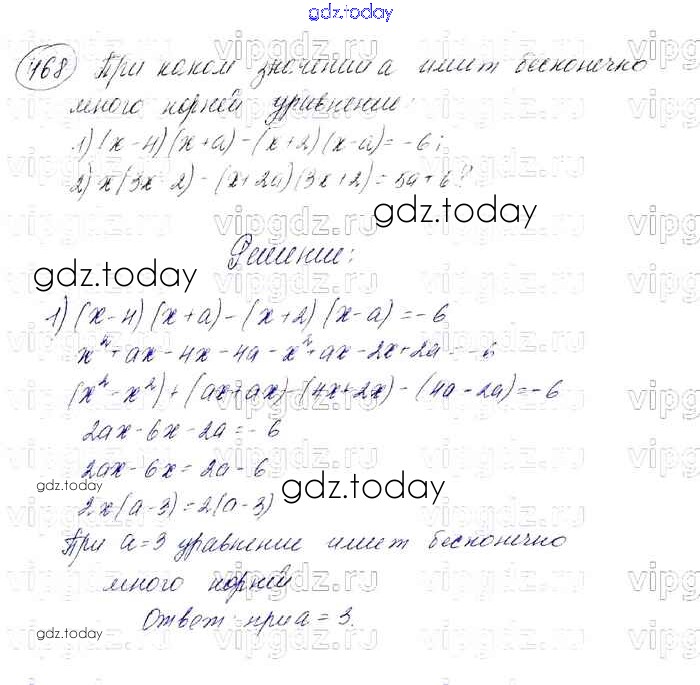 gdz.today
468 При каком значении а имеет бесконечно
много корней уравнение:
1) (x-4)(x+a)-(x+2)(x-a)=-6;
2) x(3x-2)-(x+2a)(3x+2)=5a+6?
gdz.today
Решение:
gdz.today
1) (x-4)(x+a)-(x+2)(x-a)=-6
x²+ax-4x-4a-x²+ax-2x+2a=-6
(x²-x²)+(ax+ax)-(4x+2x)-(4a-2a)=-6
2ax-6x-2a=-6
2ax-6x=2a-6
gdz.today
gdz.today
2x(a-3)=2(a-3)
При a=3 уравнение имеет бесконечно
много корней
Ответ: при a=3.
gdz.today
vipgdz.ru